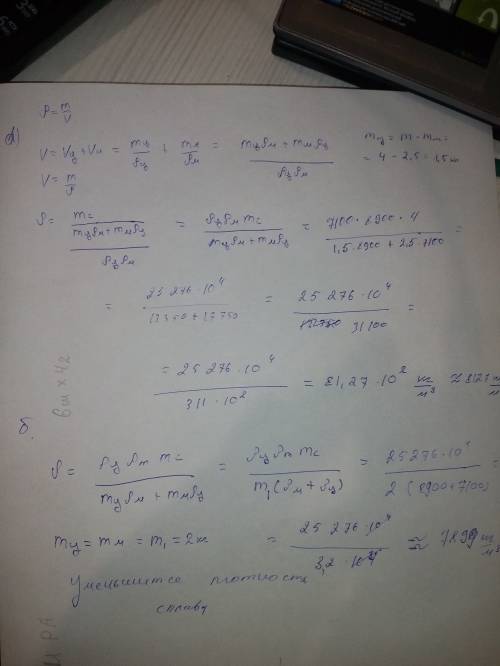 а)
ρ = m/V
V = Vц + Vм = mц/ρц + mм/ρм = (mцρм + mмρц)/(ρцρм)
mц = m − mм =
= 4 − 2,5 = 1,5 кг
V = m/ρ
ρ = mс/((mцρм + mмρц)/(ρцρм)) = ρцρм mс/(mцρм + mмρц) = 7100 · 8900 · 4/(1,5 · 8900 + 2,5 · 7100) =
= 25 276 · 10⁴/(13350 + 17750) = 25 276 · 10⁴/31100 =
= 25 276 · 10⁴/(311 · 10²) = 81,27 · 10² кг/м³ ≈ 8127
б.
ρ = ρцρм mс/(mцρм + mмρц) = ρцρм mс/(m₁(ρм + ρц)) = 25276 · 10⁴/(2(8900+7100)) =
mц = mм = m₁ = 2кг = 25 276 · 10⁴/(3,2 · 10⁴) ≈ 7899 кг/м³
Уменьшится плотность
сплава